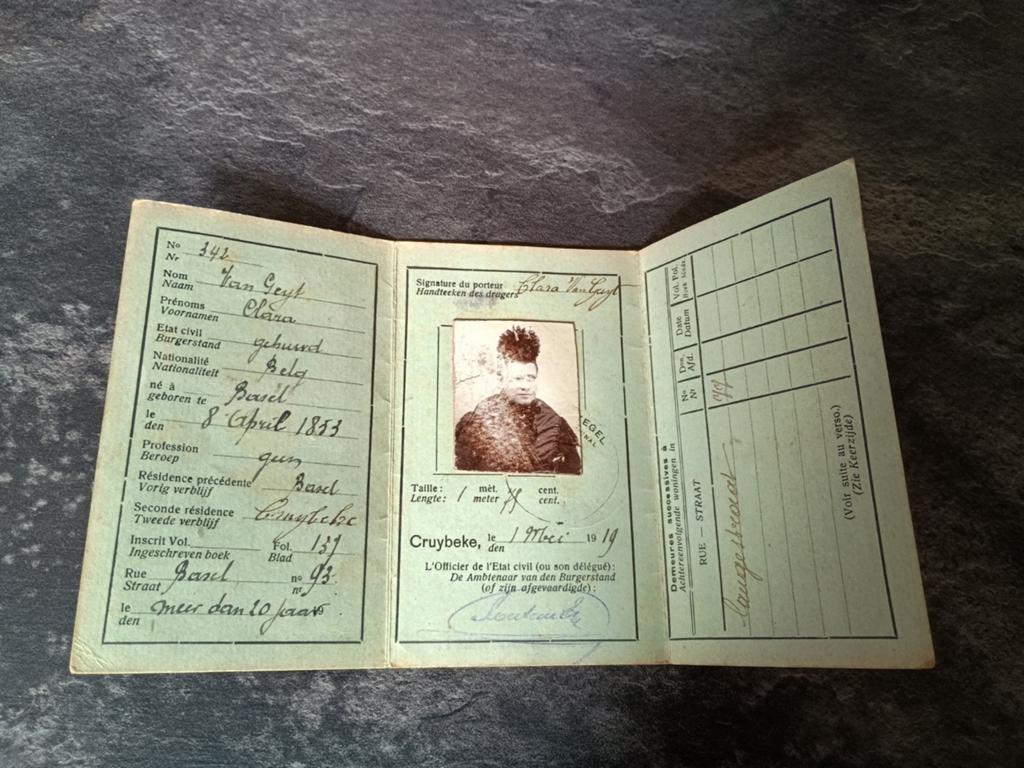 No
Nr 342
Nom
Naam Van Geyt
Prénoms
Voornamen Clara
Etat civil
Burgerstand gehuwd
Nationalité
Nationaliteit Belg
né à
geboren te Basel
le
den 8 April 1853
Profession
Beroep geen
Résidence précédente
Vorig verblijf Basel
Seconde résidence
Tweede verblijf Cruybeke
Inscrit Vol. Fol. 137
Ingeschreven boek Blad
Rue Basel no 93
Straat nr
le
den meer dan 20 jaar
Signature du porteur Clara Van Geyt
Handteeken des dragers
EGEL
Taille: 1 mèt. cent.
Lengte: meter cent.
Cruybeke, le 1 Mei 1919
den
L'Officier de l'Etat civil (ou son délégué):
De Ambtenaar van den Burgerstand
(of zijn afgevaardigde):
Demeures successives à
Achtereenvolgende woningen in
RUE — STRAAT
No
Nr
Div.
Afd.
Date
Datum
Vol. Fol.
Boek Bladz.
(Voir suite au verso.)
(Zie Keerzijde)